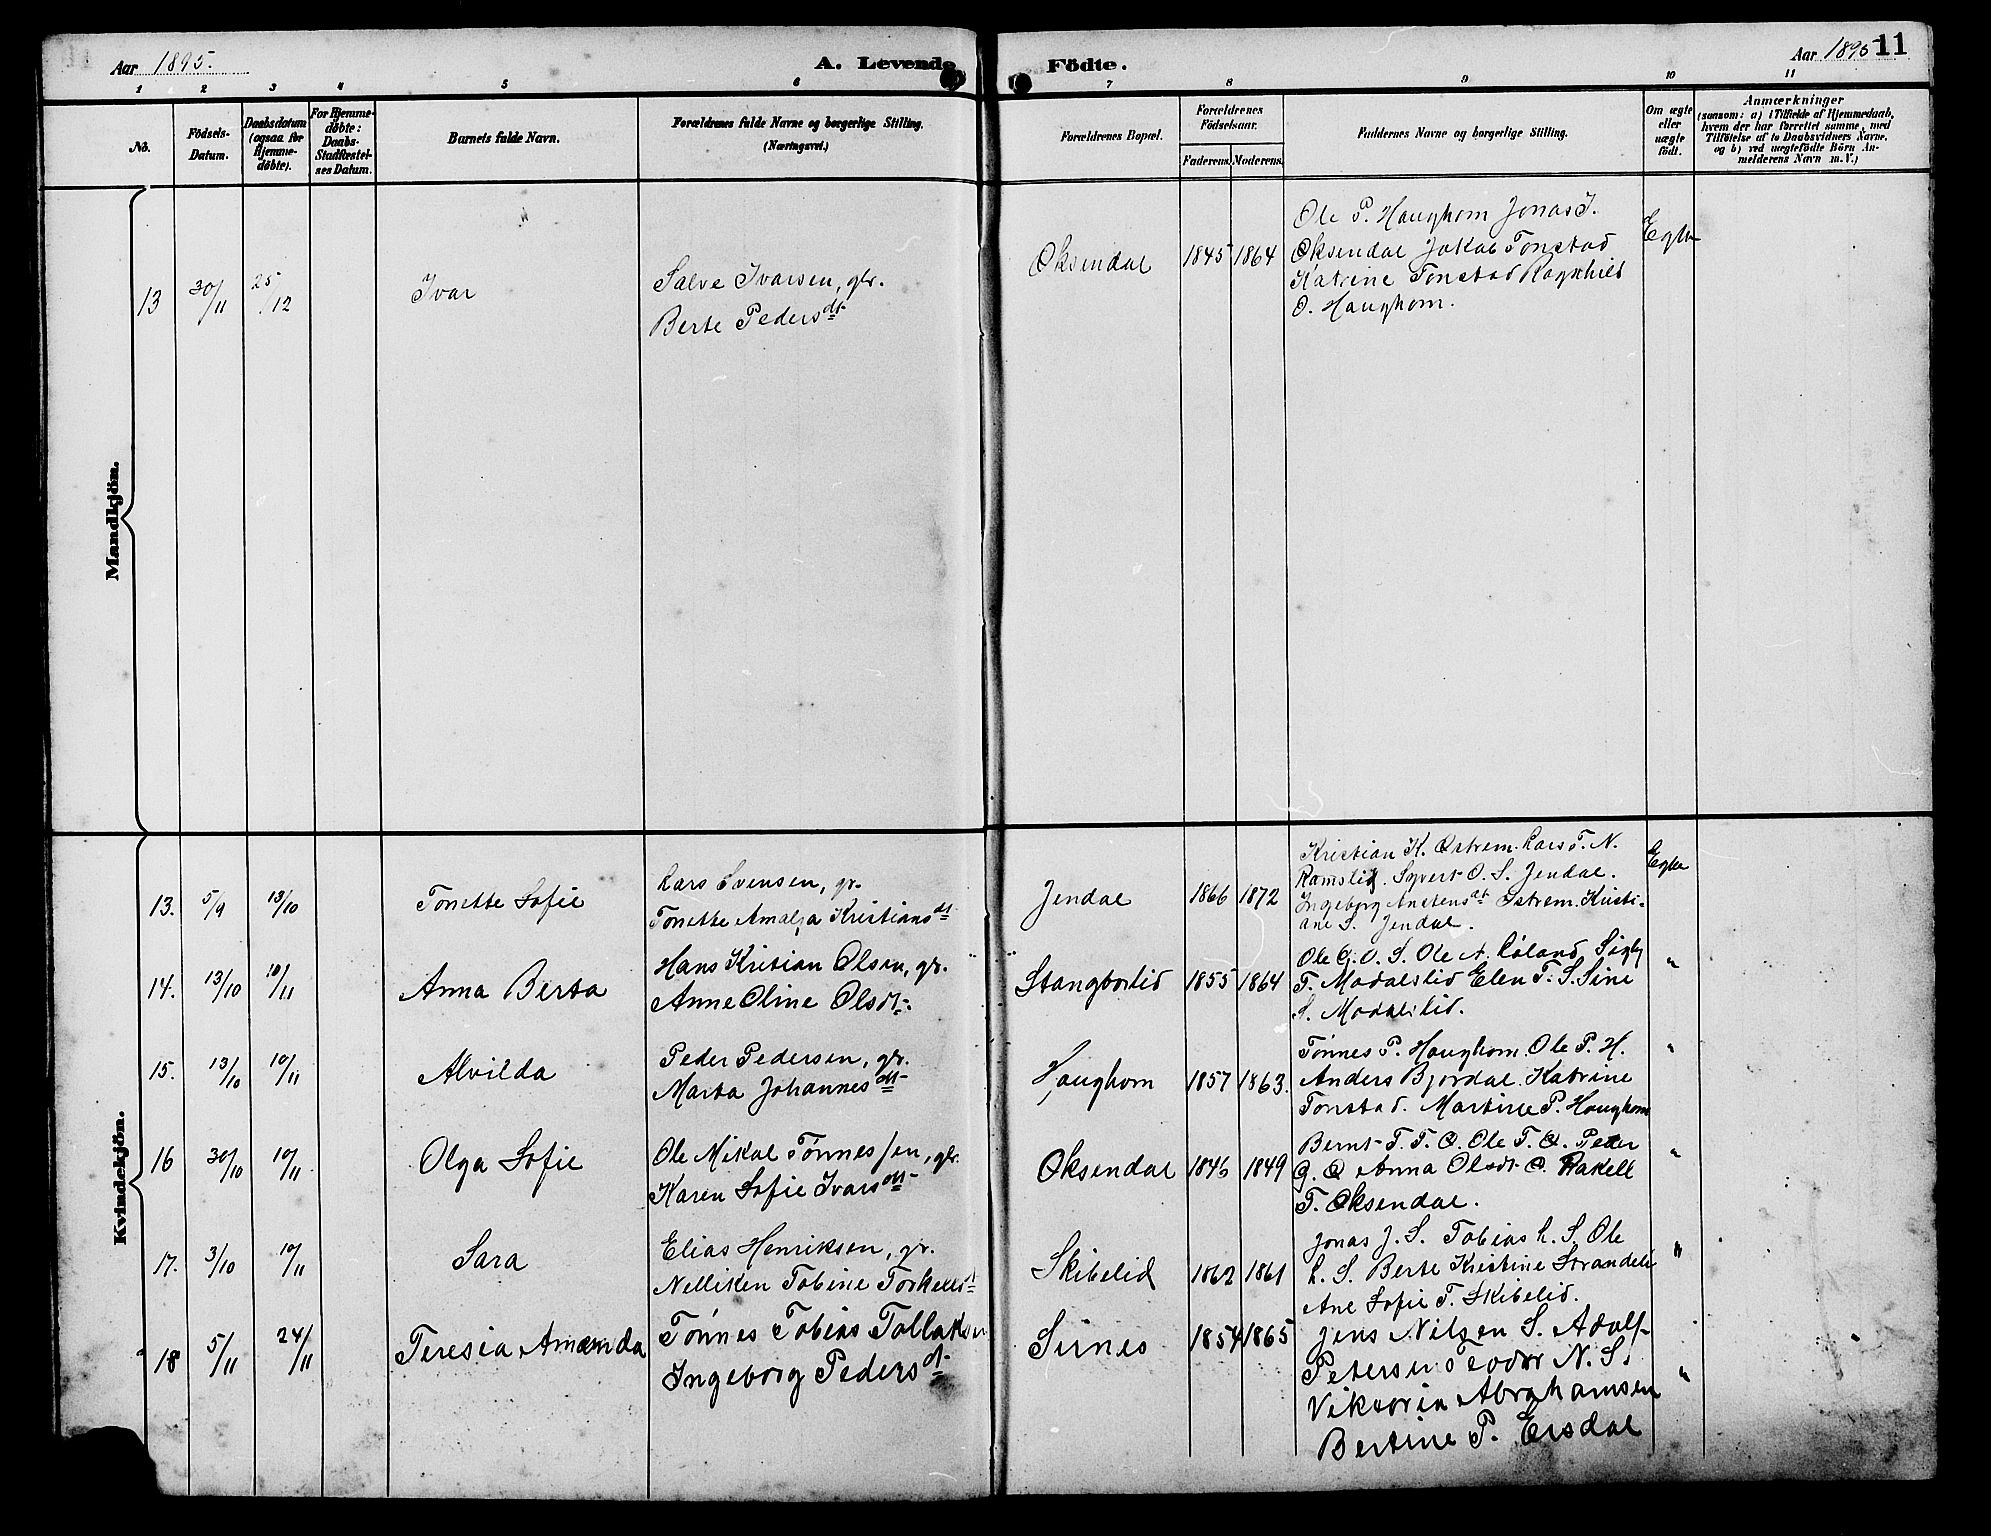 Aar 1895.
A. Levende Födte.
Aar 1895
11
1 2 3 4 5 6 7 8 9 10 11
No.
Födsels-
Datum.
Daabsdatum
(ogsaa for
Hjemme-
döbte).
For Hjemme-
döbte:
Daabs-
Stadfæstel-
ses Datum.
Barnets fulde Navn.
Forældrenes fulde Navne og borgerlige Stilling.
(Næringsvei.)
Forældrenes Bopæl.
Forældrenes
Födselsaar.
Faderens.
Moderens.
Faddernes Navne og borgerlige Stilling.
Om ægte
eller
uægte
födt.
Anmærkninger
(saasom: a) i Tilfælde af Hjemmedaab,
hvem der har forrettet samme, med
Tilföielse af to Daabsvidners Navne,
og b) ved uægtefödte Börn An-
melderens Navn m.V.)
Mandkjön.
13 30/11 25/12 Ivar
Salve Ivarsen, gbr.
Berte Pedersdt.
Øksendal 1845 1864
Ole P. Haughom Jonas I.
Øksendal Jakob Tonstad
Katrine Tonstad Ragnhild
O. Haughom.
Egte
Kvindekjön.
13. 5/9 13/10 Tonette Sofie
Lars Svensen, gr.
Tonette Amalia Kristiansdt
Jendal 1866 1872
Kristian K. Østrem. Lars T. N.
Ramslid. Syvert O. S. Jendal.
Ingeborg Anstensdt Østrem. Kristi-
ane S. Jendal.
Egte
14. 13/10 10/11 Anna Berta
Hans Kristian Olsen, gr.
Anne Oline Olsdt.
Stangborlid 1855 1864
Ole G. O. S. Ole A. Røland
T. Modalslid Elen T. S. Sine
S. Modalslid.
"
15. 13/10 10/11 Alvilda
Peder Pedersen, gbr.
Marta Johannesdt
Haughom 1857 1863.
Tønnes P. Haughom. Ole P. H.
Anders Bjordal. Katrine
Tonstad. Martine P. Haughom
"
16 30/10 10/11 Olga Sofie
Ole Mikal Tønnessen, gbr.
Karen Sofie Ivarsdt
Øksendal 1846 1849
Bernt T. T. Ø. Ole T. Ø. Peder
G. Ø Anna Olsdt Ø. Rakell
T. Øksendal.
"
17. 3/10 10/11 Sara
Elias Henriksen, gr.
Nelliken Tobine Torkelsd
Skibelid 1862 1861
Jonas J. S. Tobias L. S. Ole
L. S. Berte Kristine Strandeli
Ane Sofie T. Skibelid.
"
18 5/11 24/11 Teresia Amanda
Tønnes Tobias Tollaksen
Ingeborg Pedersdt
Sirnes 1854 1865
Jens Nilsen S. Adolf
Petersen Teodor N. S.
Viktoria Abrahamsen
Bertine P. Ersdal
"